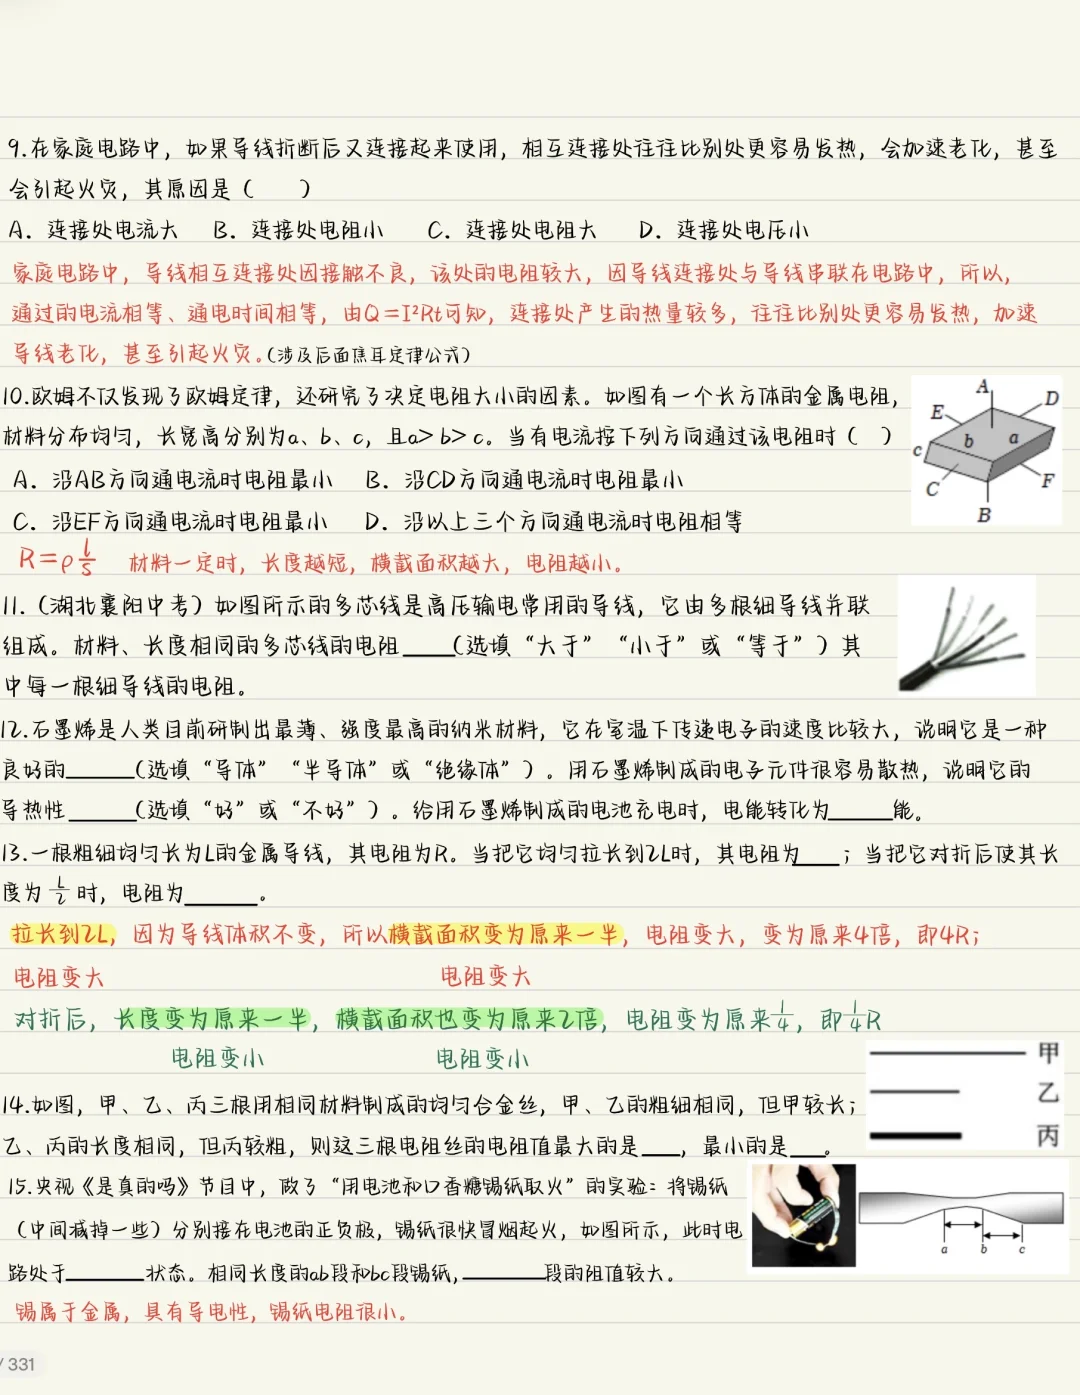 9.在家庭电路中，如果导线折断后又连接起来使用，相互连接处往往比别处更容易发热，会加速老化，甚至
会引起火灾，其原因是（　　）
A．连接处电流大　B．连接处电阻小　C．连接处电阻大　D．连接处电压小
家庭电路中，导线相互连接处因接触不良，该处的电阻较大，因导线连接处与导线串联在电路中，所以，
通过的电流相等、通电时间相等，由Q=I²Rt可知，连接处产生的热量较多，往往比别处更容易发热，加速
导线老化，甚至引起火灾。(涉及后面焦耳定律公式)
10.欧姆不仅发现了欧姆定律，还研究了决定电阻大小的因素。如图有一个长方体的金属电阻，
材料分布均匀，长宽高分别为a、b、c，且a>b>c。当有电流按下列方向通过该电阻时（　）
A．沿AB方向通电流时电阻最小　B．沿CD方向通电流时电阻最小
C．沿EF方向通电流时电阻最小　D．沿以上三个方向通电流时电阻相等
A
D
E
b
a
c
C
F
B
R=ρl/s　材料一定时，长度越短，横截面积越大，电阻越小。
11.（湖北襄阳中考）如图所示的多芯线是高压输电常用的导线，它由多根细导线并联
组成。材料、长度相同的多芯线的电阻____(选填“大于”“小于”或“等于”）其
中每一根细导线的电阻。
12.石墨烯是人类目前研制出最薄、强度最高的纳米材料，它在室温下传递电子的速度比较大，说明它是一种
良好的_____(选填“导体”“半导体”或“绝缘体”）。用石墨烯制成的电子元件很容易散热，说明它的
导热性_____(选填“好”或“不好”）。给用石墨烯制成的电池充电时，电能转化为_____能。
13.一根粗细均匀长为L的金属导线，其电阻为R。当把它均匀拉长到2L时，其电阻为____；当把它对折后使其长
度为L/2时，电阻为______。
拉长到2L，因为导线体积不变，所以横截面积变为原来一半，电阻变大，变为原来4倍，即4R；
电阻变大　电阻变大
对折后，长度变为原来一半，横截面积也变为原来2倍，电阻变为原来1/4，即1/4R
电阻变小　电阻变小
甲
乙
丙
14.如图，甲、乙、丙三根用相同材料制成的均匀合金丝，甲、乙的粗细相同，但甲较长；
乙、丙的长度相同，但丙较粗，则这三根电阻丝的电阻值最大的是___，最小的是___。
15.央视《是真的吗》节目中，做了“用电池和口香糖锡纸取火”的实验：将锡纸
（中间减掉一些）分别接在电池的正负极，锡纸很快冒烟起火，如图所示，此时电
路处于______状态。相同长度的ab段和bc段锡纸，______段的阻值较大。
a b c
锡属于金属，具有导电性，锡纸电阻很小。
/ 331